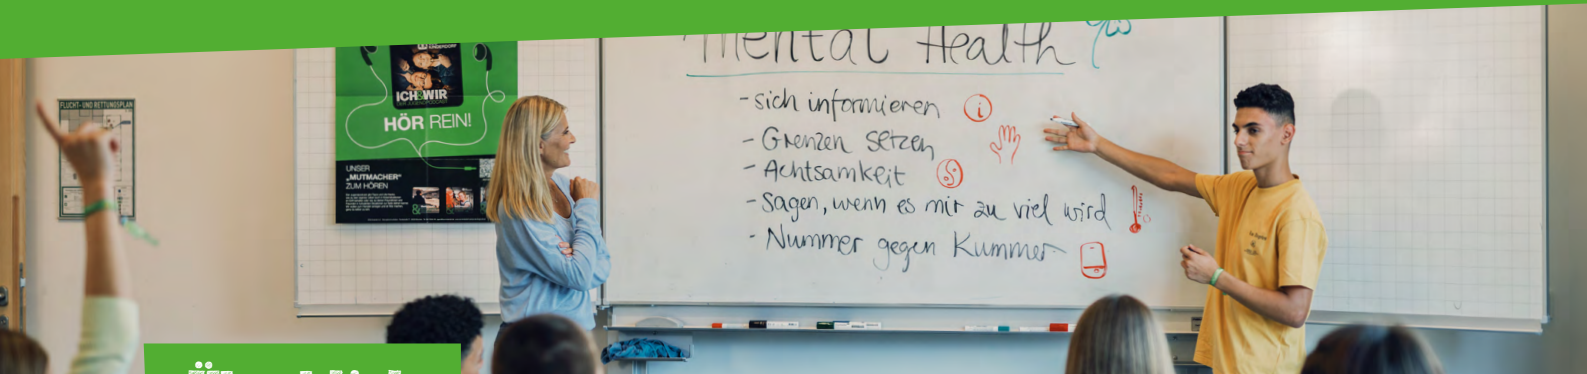 FLUCHT- UND RETTUNGSPLAN
KINDERDORF
ICH&WIR
HÖR REIN!
UNSER
„MUTMACHER"
ZUM HÖREN
Mental Health
- sich informieren i
- Grenzen setzen
- Achtsamkeit
- Sagen, wenn es mir zu viel wird
- Nummer gegen Kummer